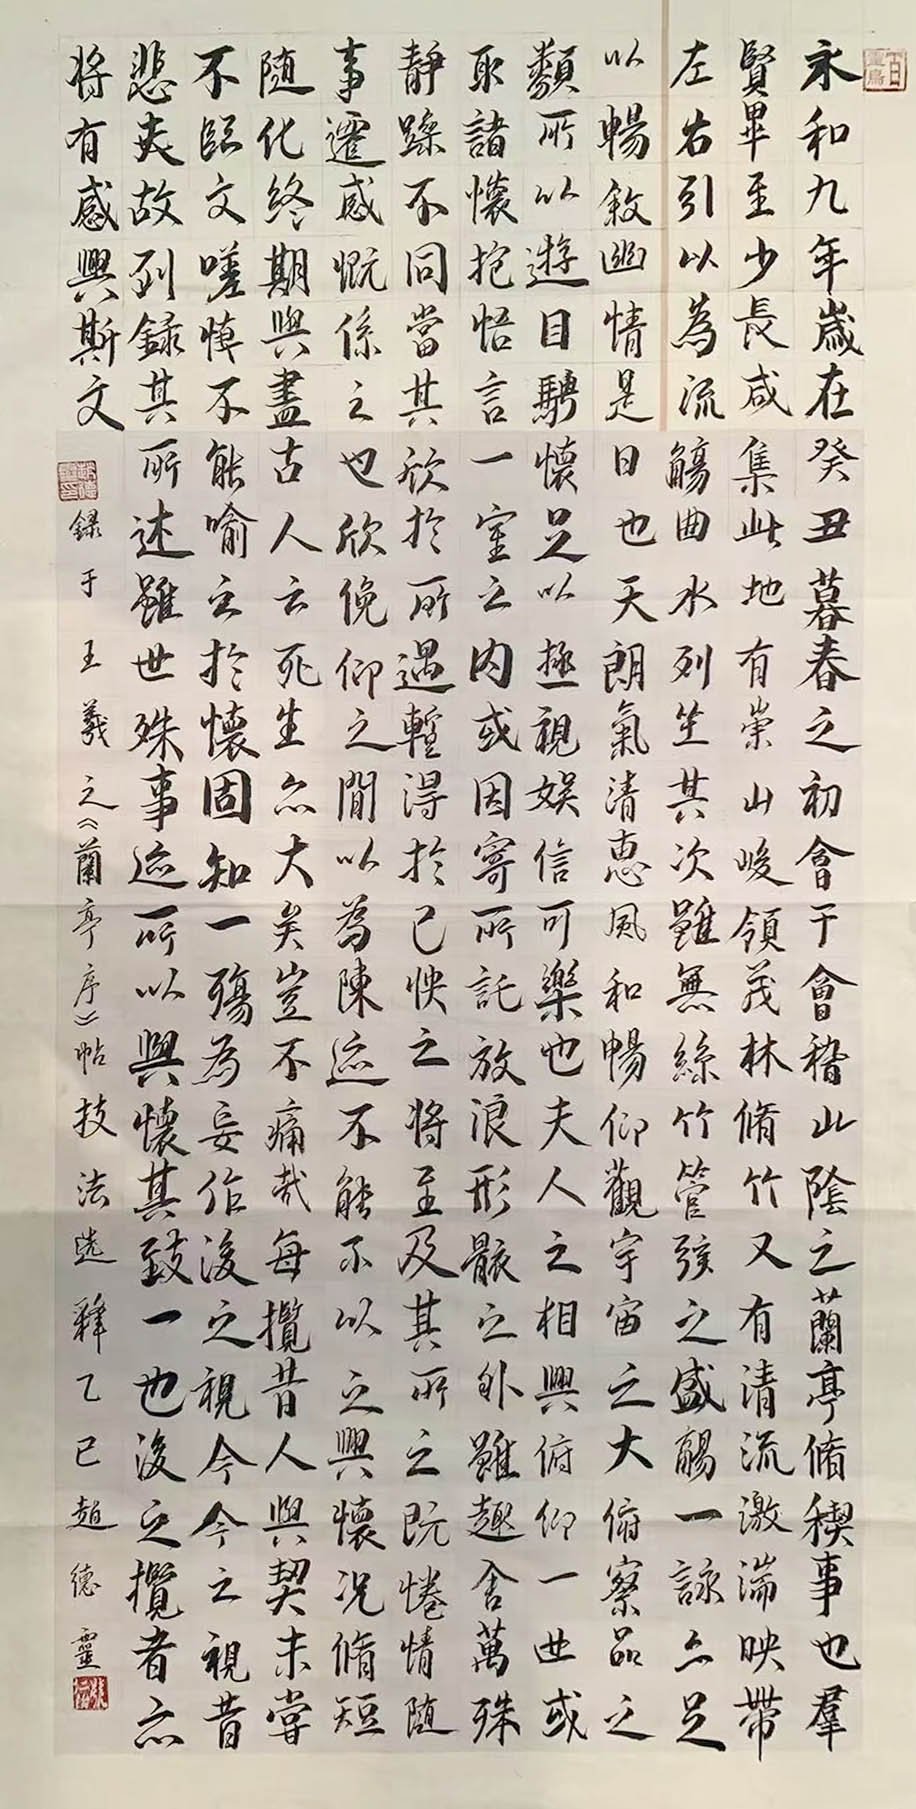 永和九年歲在癸丑暮春之初會于會稽山陰之蘭亭脩稧事也羣
賢畢至少長咸集此地有崇山峻領茂林脩竹又有清流激湍映帶
左右引以為流觴曲水列坐其次雖無絲竹管弦之盛觴一詠亦足
以暢敘幽情是日也天朗氣清惠風和暢仰觀宇宙之大俯察品之
類所以遊目騁懷足以極視娛信可樂也夫人之相與俯仰一世或
取諸懷抱悟言一室之內或因寄所託放浪形骸之外雖趣舍萬殊
靜躁不同當其欣於所遇暫得於己怏之將至及其所之既惓情随
事遷感慨係之也欣俛仰之間以為陳迹不能不以之興懷况脩短
随化終期與盡古人云死生亦大矣豈不痛哉每攬昔人與契未嘗
不臨文嗟悼不能喻之於懷固知一殤為妄作後之視今今之視昔
悲夫故列錄其所述雖世殊事迹所以興懷其致一也後之攬者亦
将有感興斯文
錄于王羲之《蘭亭序》帖技法選釋乙巳趙德靈